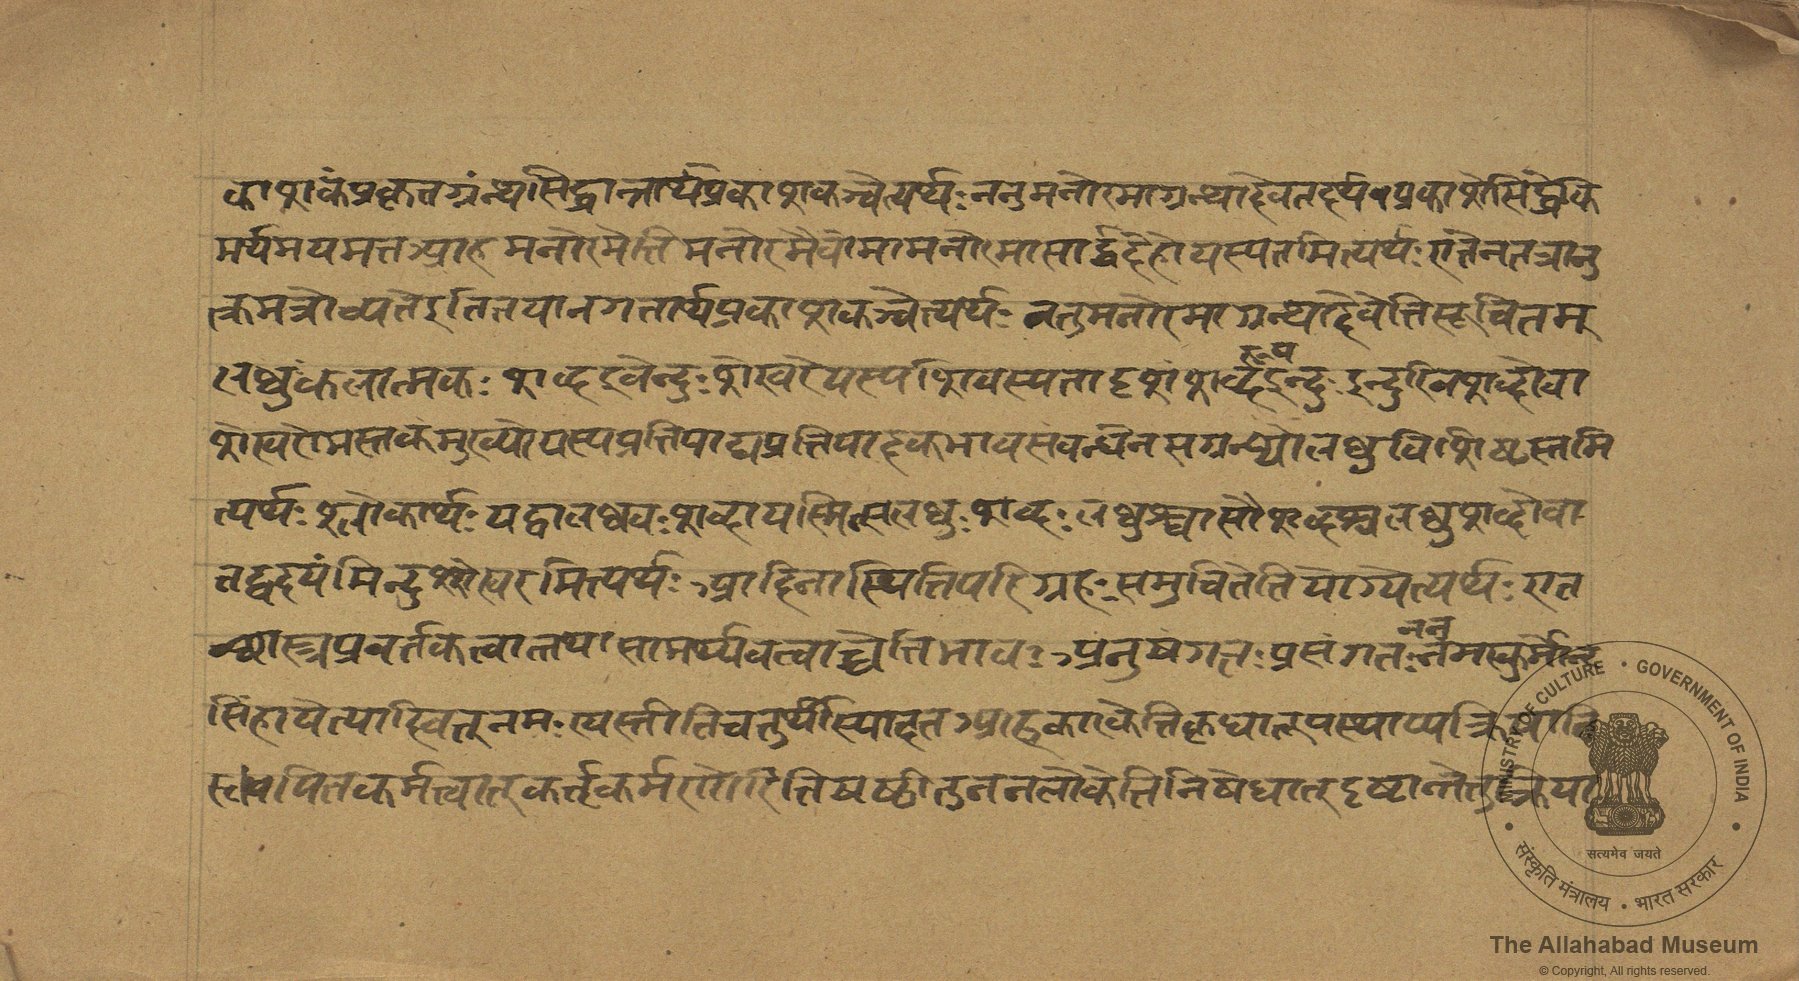 काशकंप्रकृतग्रंन्थसिद्धान्तार्थप्रकाशकञ्चेत्यर्थः ननुमनोरमाग्रन्थादेवतदर्थप्रकाशेसिद्धेकि
मर्थमयमत्तआह मनोरमेति मनोरमैवोमामनोरमोमासार्द्धदेहोयस्यतमित्यर्थः एतेनतत्रानु
क्तमत्रोच्यतेइतितयानगतार्थप्रकाशकञ्चेत्यर्थः नतुमनोरमाग्रन्थादेवेतिसूचितम्
लघुःकलात्मकः शब्दइवेन्दुः शेखरेयस्यशिवस्यतादृशंशब्दरूपइन्दुः इन्दुरिवशब्दोवा
शेखरोमस्तकंमुख्योयस्यप्रतिपाद्यप्रतिपादकभावसंवन्धेनसग्रन्थोलघुविशिष्टस्तमि
त्यर्थः श्लोकार्थः यद्वालघवःशब्दायस्मिन्सलघुःशब्दः लघुश्चासौशब्दश्चलघुशब्दोवा
तद्वदयंमिन्दुशेखरमित्यर्थः आदिनास्थितिपरिग्रहः समुचितेतियोग्येत्यर्थः एत
च्छास्त्रप्रवर्तकत्वात्तथासामर्थ्यवत्वाच्चेतिभावः अनुषंगतः प्रसंगतः ननुनमस्कुर्मोनृ
सिंहायेत्यादिवत्नमःस्वस्तीतिचतुर्थीस्यादतआहकारकेतिकृधातूपस्थाप्यक्रिया
रूपितकर्मत्वात्कर्तृकर्मणोरितिषष्ठीतुननलोकेतिनिषेधात्दृष्टान्तेतुक्रिया
MINISTRY OF CULTURE • GOVERNMENT OF INDIA
सत्यमेव जयते
संस्कृति मंत्रालय • भारत सरकार
The Allahabad Museum
© Copyright, All rights reserved.